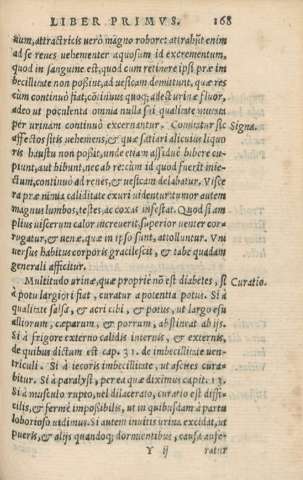 LIBER PRIMVS. 168
nium, attractricis uerò magno robore: atrahũt enim
ad se renes uehementer aquosum id excrementum,
quod in sanguine est, quod cum retinere ipsi præ im
becillitate non possint, ad uesicam demittunt, quæ res
cũm continuò fiat, cõtinuus quoq; adest urinæ fluor,
adeo ut poculenta omnia nulla sui qualitate mutata
per urinam continuò excernantur. Comitatur sic Signa.
affectos sitis uehemens, & quæ satiari alicuius liquo
ris haustu non possit, unde etiam assiduè bibere cu-
piunt, aut bibunt, nec ab re: cùm id quod fuerit inie-
ctum, continuò ad renes, & uesicam delabatur. Visce
ra præ nimia caliditate exuri uidentur: tumor autem
magnus lumbos, testes, ac coxas infestat. Quod si am
plius uiscerum calor increuerit, superior uenter cor-
rugatur, & uenæ, quæ in ipso sunt, attolluntur. Vni
uersus habitus corporis gracilescit, & tabe quadam
generali afficitur.
Multitudo urinæ, quæ propriè nõ est diabetes, si Curatio.
à potu largiori fiat, curatur a potentia potus. Si à
qualitate salsa, & acri cibi, & potus, ut largo esu
alliorum, cæparum, & porrum, abstineat ab ijs.
Si à frigore externo calidis internis, & externis,
de quibus dictum est cap. 31. de imbecillitate uen-
triculi. Si à iecoris imbecillitate, ut ascites cura-
bitur. Si à paralysi, per ea quæ diximus capit. 13.
Si à musculo rupto, uel dilacerato, curatio est diffi-
cilis, & fermè impossibilis, ut in quibusdam à partu
laborioso uidimus. Si autem inuitis urina excidat, ut
pueris, & alijs quandoq; dormientibus, causa aufe-
Y ij ratur